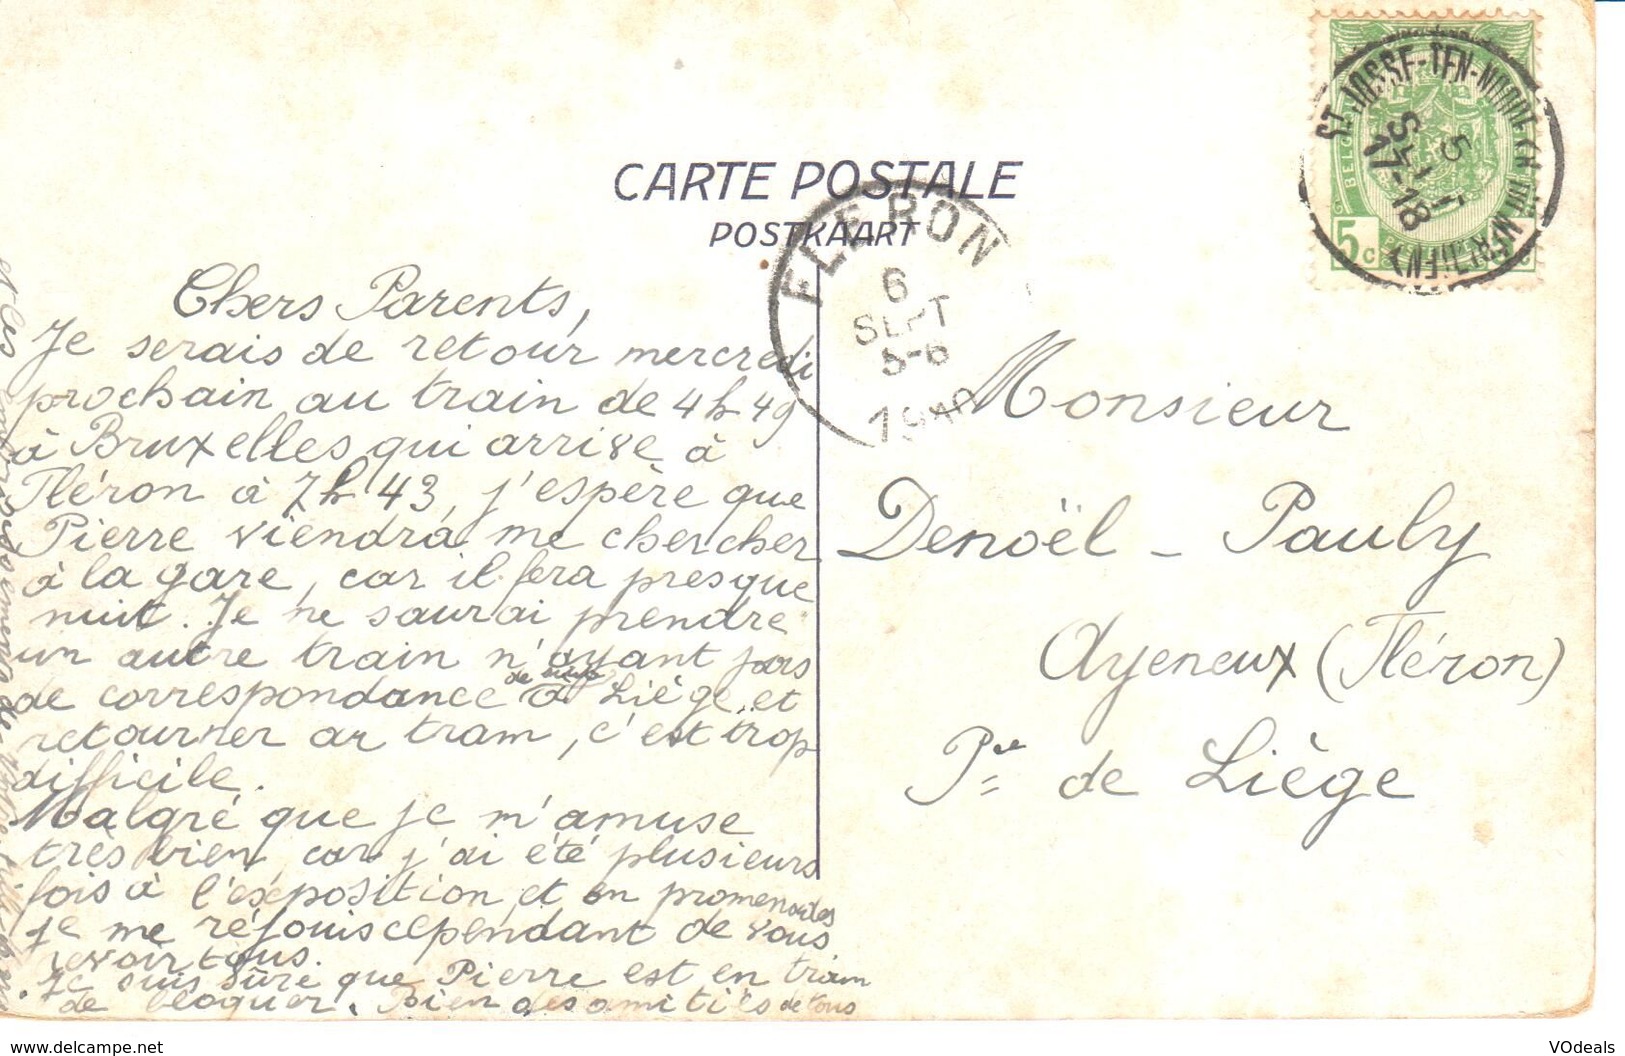 CARTE POSTALE
POSTKAART
FLERON
6
SEPT
5-6
ST-JOSSE-TEN-NOODE
5
17-18
BELG
5 c
Chers Parents,
Je serais de retour mercredi
prochain au train de 4h 49
à Bruxelles qui arrive à
Fléron à 7h 43, j'espère que
Pierre viendra me chercher
à la gare, car il fera presque
nuit. Je ne saurai prendre
un autre train n'ayant pas
de correspondance à Liège et
retourner au tram, c'est trop
difficile.
Malgré que je m'amuse
très bien, car j'ai été plusieurs
fois à l'exposition et en promenades
je me réjouis cependant de vous
revoir tous.
Je suis sûre que Pierre est en train
de bloquer. Bien des amitiés de tous
Monsieur
Denoël - Pauly
Ayeneux (Fléron)
Pce de Liège
www.delcampe.net
VOdeals